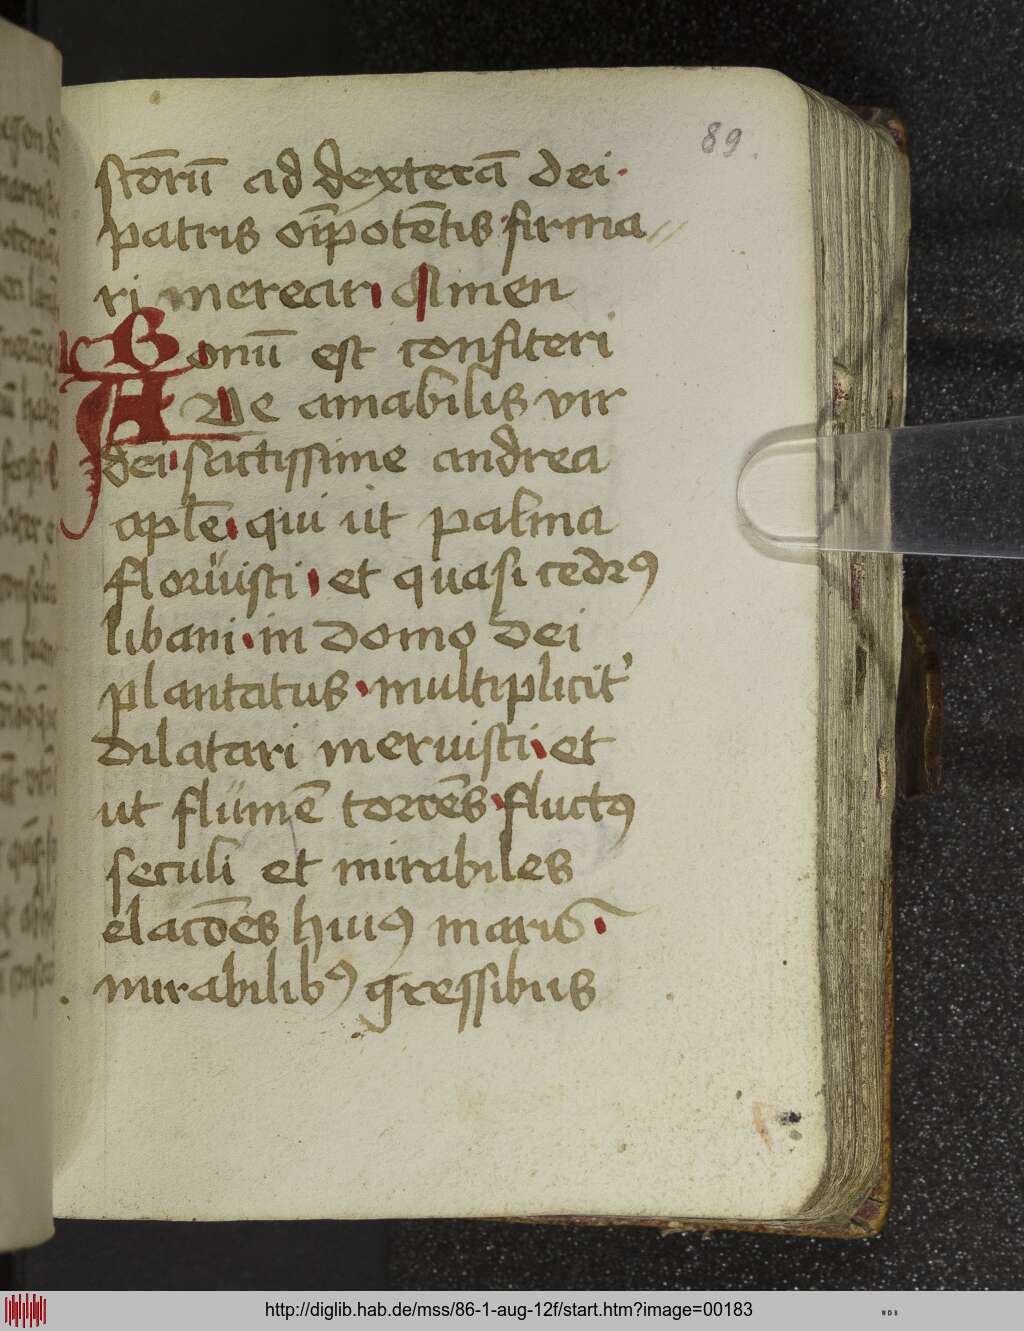 89.
sctōrū ad dexterā dei
patris oīpotētis firma//
ri merear Amen
ps Bonū est confiteri
AVe amabilis vir
dei sāctissime andrea
aplē qui ut palma
floruisti et quasi cedrꝰ
libani in domo dei
plantatus multiplicit᷑
dilatari meruisti et
ut flumē torrēs fluctꝰ
seculi et mirabiles
elacōes huiꝰ maris
mirabilibꝰ gressibus
http://diglib.hab.de/mss/86-1-aug-12f/start.htm?image=00183